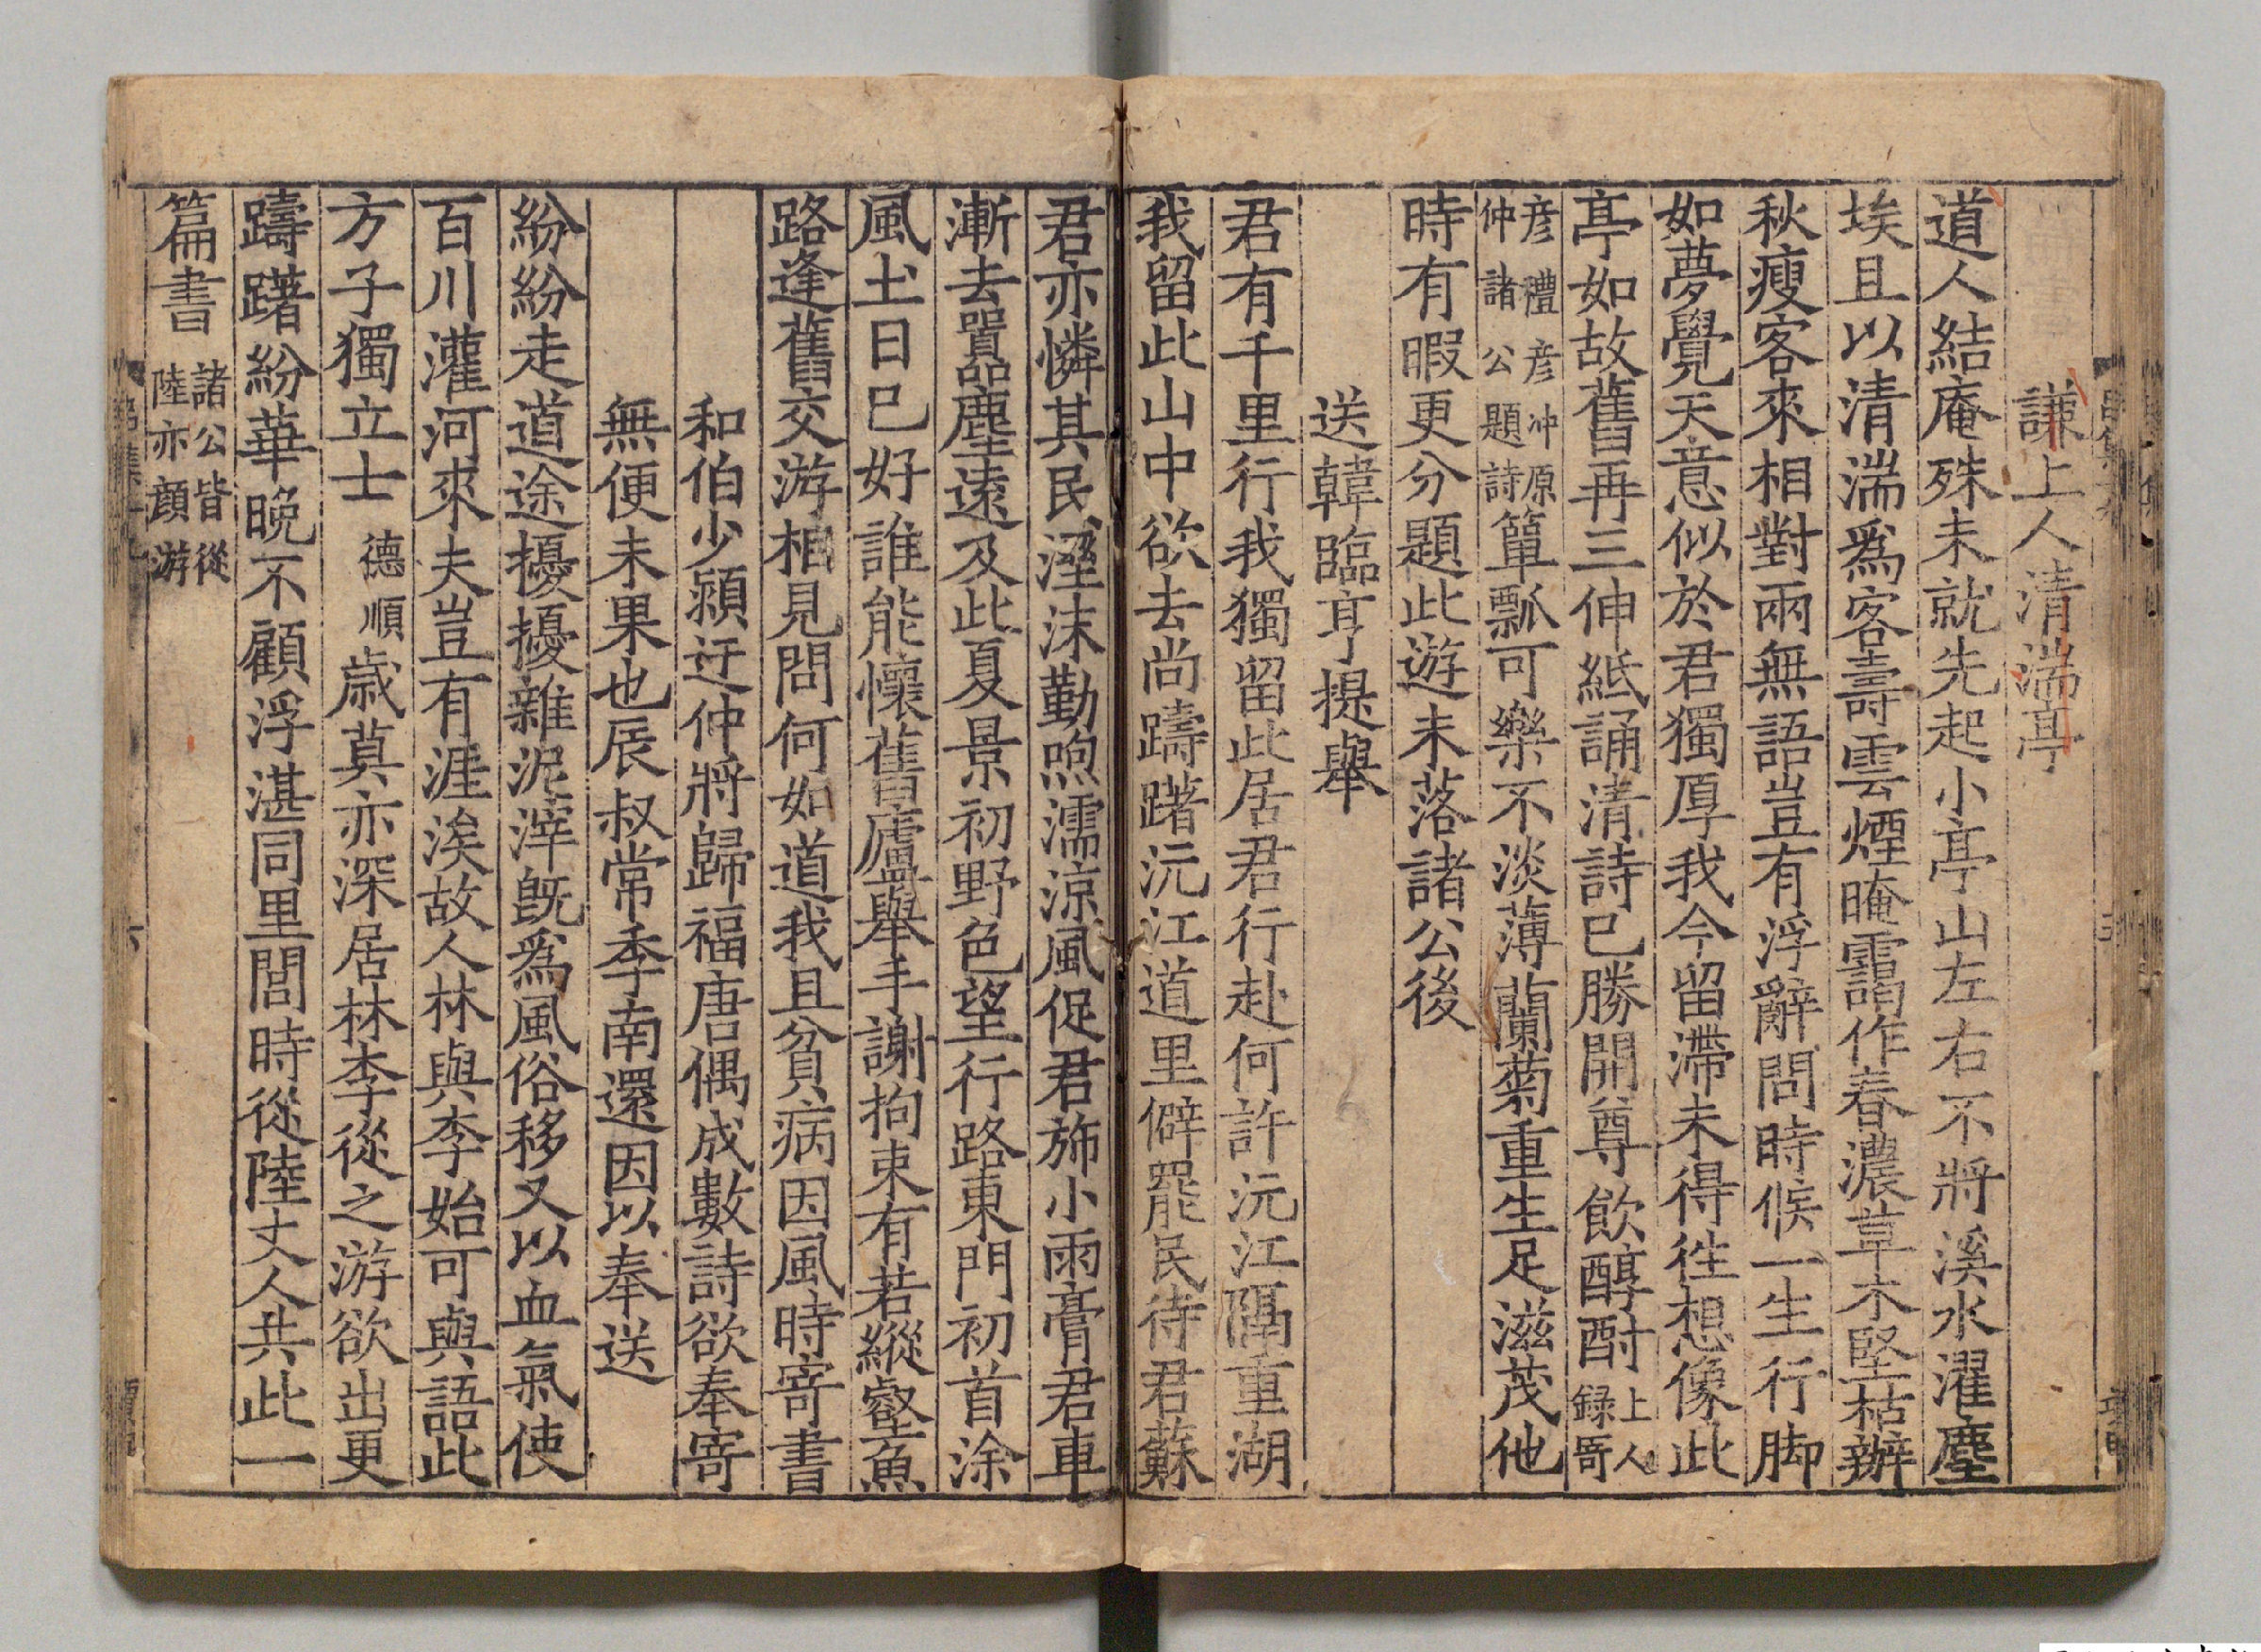 謙上人清湍亭
道人結庵殊未就先起小亭山左右不將溪水濯塵
埃且以清湍爲客壽雲煙晻靄作春濃草木堅枯辦
秋瘦客來相對兩無語豈有浮辭問時候一生行脚
如夢覺天意似於君獨厚我今留滯未得往想像此
亭如故舊再三伸紙誦清詩已勝開尊飲醇酎上人
錄寄
彥禮彥冲原
仲諸公題詩簞瓢可樂不淡薄蘭菊重生足滋茂他
時有暇更分題此遊未落諸公後
送韓臨亨提舉
君有千里行我獨留此居君行赴何許沅江隔重湖
我留此山中欲去尚躊躇沅江道里僻罷民待君蘇
君亦憐其民溼沫勤喣濡涼風促君斾小雨膏君車
漸去嚚塵遠及此夏景初野色望行路東門初首涂
風土日已好誰能懷舊廬舉手謝拘束有若縱壑魚
路逢舊交游相見問何如道我且貧病因風時寄書
和伯少潁迂仲將歸福唐偶成數詩欲奉寄
無便未果也辰叔常季南還因以奉送
紛紛走道途擾擾雜泥滓旣爲風俗移又以血氣使
百川灌河來夫豈有涯涘故人林與李始可與語此
方子獨立士德順歲莫亦深居林李從之游欲出更
躊躇紛華晚不顧浮湛同里閭時從陸丈人共此一
篇書諸公皆從
陸亦顏游